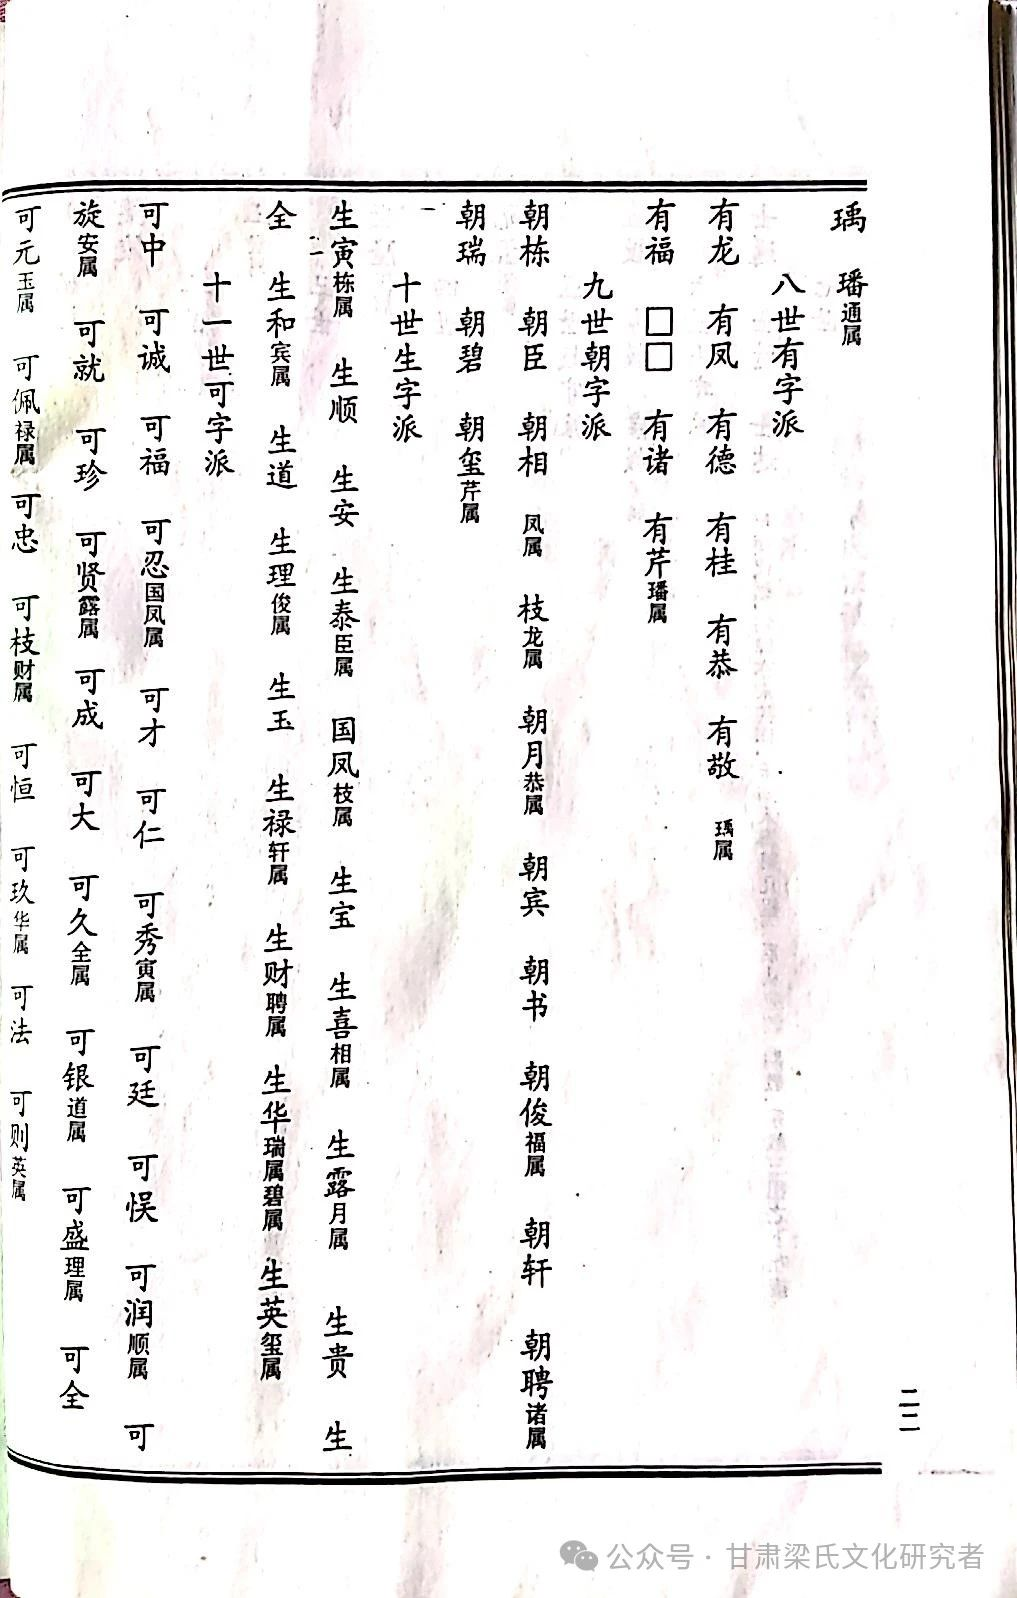 瑀 璠通属
八世有字派
有龙 有凤 有德 有桂 有恭 有敬 瑀属
有福 □□ 有诸 有芹璠属
九世朝字派
朝栋 朝臣 朝相 凤属 枝龙属 朝月恭属 朝宾 朝书 朝俊福属 朝轩 朝聘诸属
朝瑞 朝碧 朝玺芹属
十世生字派
生寅栋属 生顺 生安 生泰臣属 国凤枝属 生宝 生喜相属 生露月属 生贵 生
全 生和宾属 生道 生理俊属 生玉 生禄轩属 生财聘属 生华瑞属碧属 生英玺属
十一世可字派
可中 可诚 可福 可忍国凤属 可才 可仁 可秀寅属 可廷 可悮 可润顺属 可
旋安属 可就 可珍 可贤露属 可成 可大 可久全属 可银道属 可盛理属 可全
可元玉属 可佩禄属 可忠 可枝财属 可恒 可玖华属 可法 可则英属
二二
公众号·甘肃梁氏文化研究者